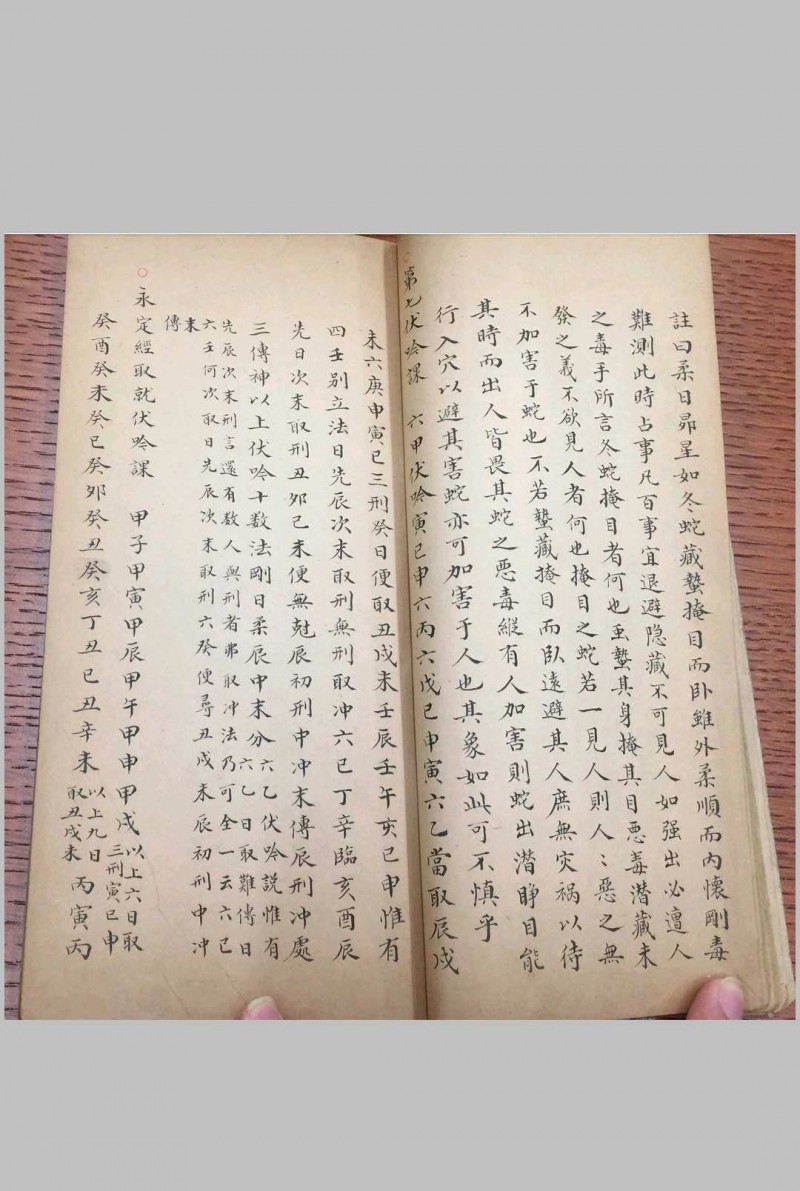 註曰柔日昴星如冬蛇藏蟄掩目而卧雖外柔順而内懷剛毒
難測此時占事凡百事宜退避隐藏不可見人如强出必遭人
之毒手所言冬蛇掩目者何也虽蟄其身掩其目恶毒潜藏未
發之義不欲見人者何也掩目之蛇若一見人則人〻惡之無
不加害于蛇也不若蟄藏掩目而臥遠避其人庶無灾祸以待
其時而出人皆畏其蛇之恶毒縱有人加害則蛇出潜睁目能
行入穴以避其害蛇亦可加害于人也其象如此可不慎乎
第七伏吟課 六甲伏吟寅巳申六丙六戊巳申寅六乙當取辰戍
未六庚申寅巳三刑癸日便取丑戍未壬辰壬午亥巳申惟有
四壬别立法日先辰次末取刑無刑取冲六巳丁辛臨亥酉辰
先日次末取刑丑夘己未便無尅辰初刑中冲末傳辰刑冲處
三傳神以上伏吟十数法剛日柔辰中末分六乙伏吟説惟有
六乙日取難傳日
先辰次末刑言還有数人與刑者弗取冲法乃可全一云六已
六壬何次取日先辰次末取刑六癸便尋丑戍未辰初刑中冲
末傳
○永定經取就伏吟課 甲子甲寅甲辰甲午甲申甲戍以上六日取
三刑寅巳申
癸酉癸未癸巳癸夘癸丑癸亥丁丑已丑辛未以上九日
取丑戍未丙寅丙